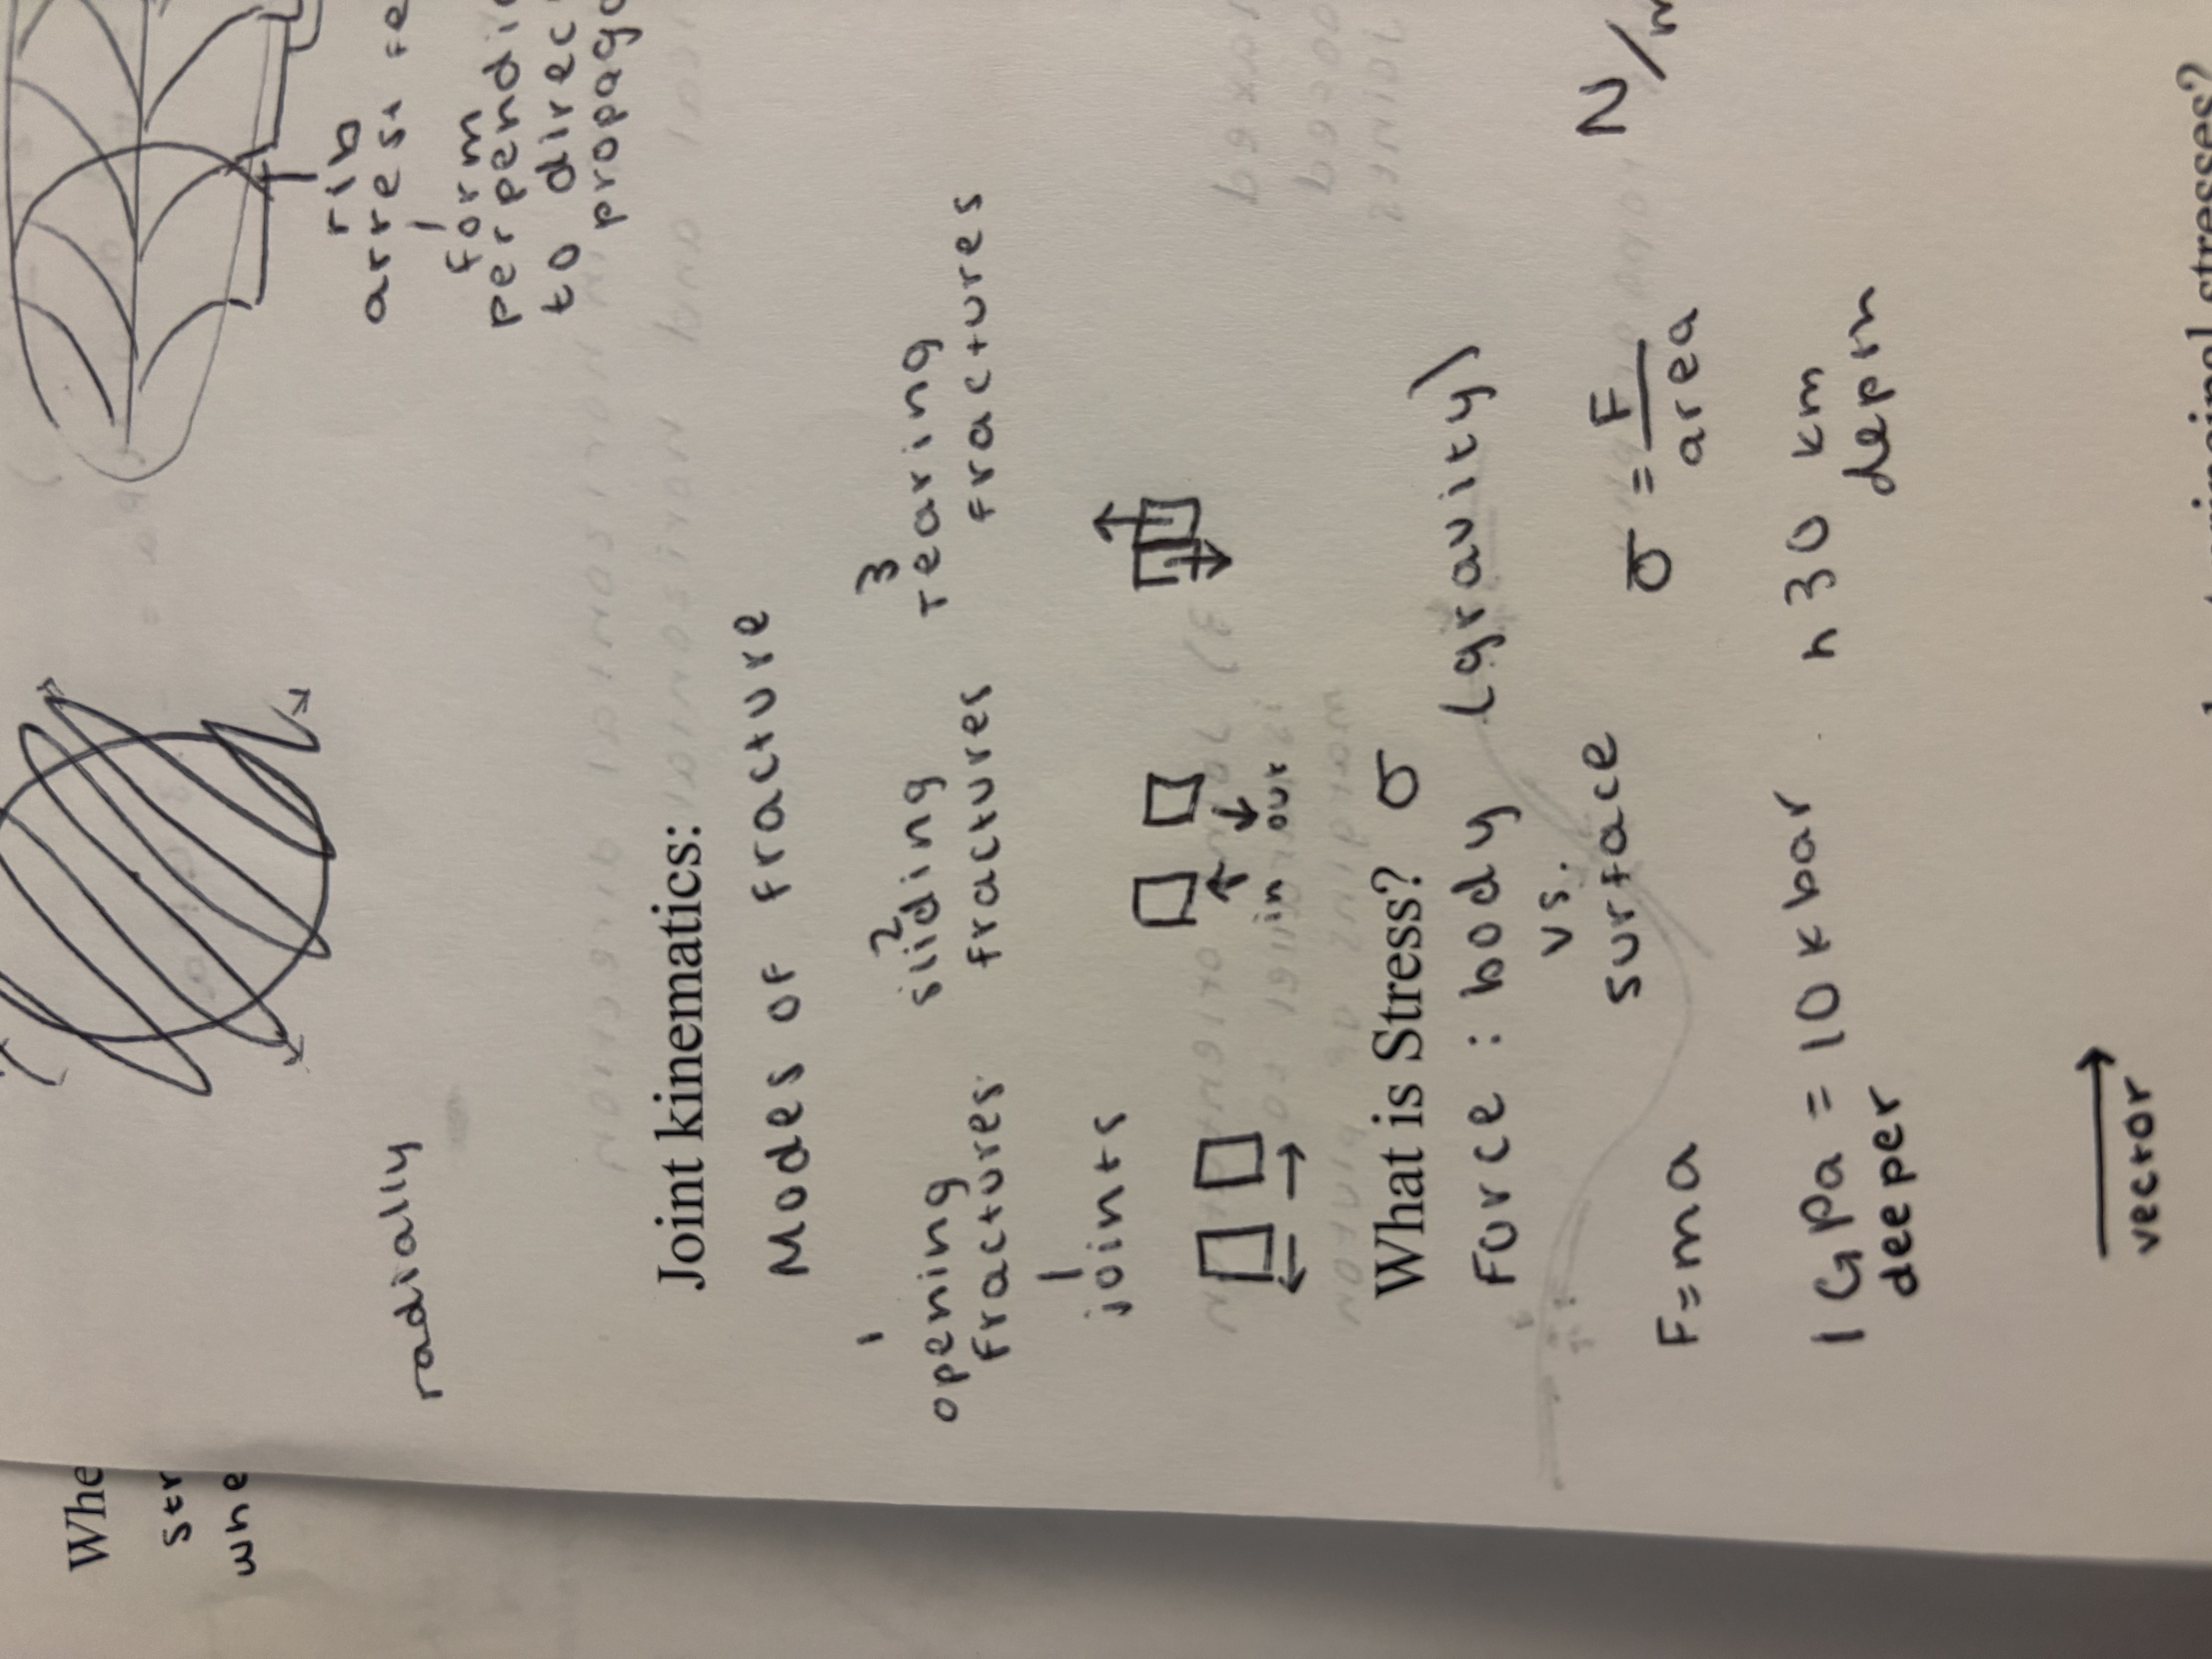 Whe
str
whe
rib
arrest
form
perpendi
to direc
propag
radially
Joint kinematics:
Modes of fracture
1 2 3
opening sliding tearing
fractures fractures fractures
joints
in out
What is Stress? σ
Force : body (gravity)
vs.
surface
F=ma σ = F/area N/m
1 GPa = 10 kbar n 30 km
deeper depth
vector
principal stresses?